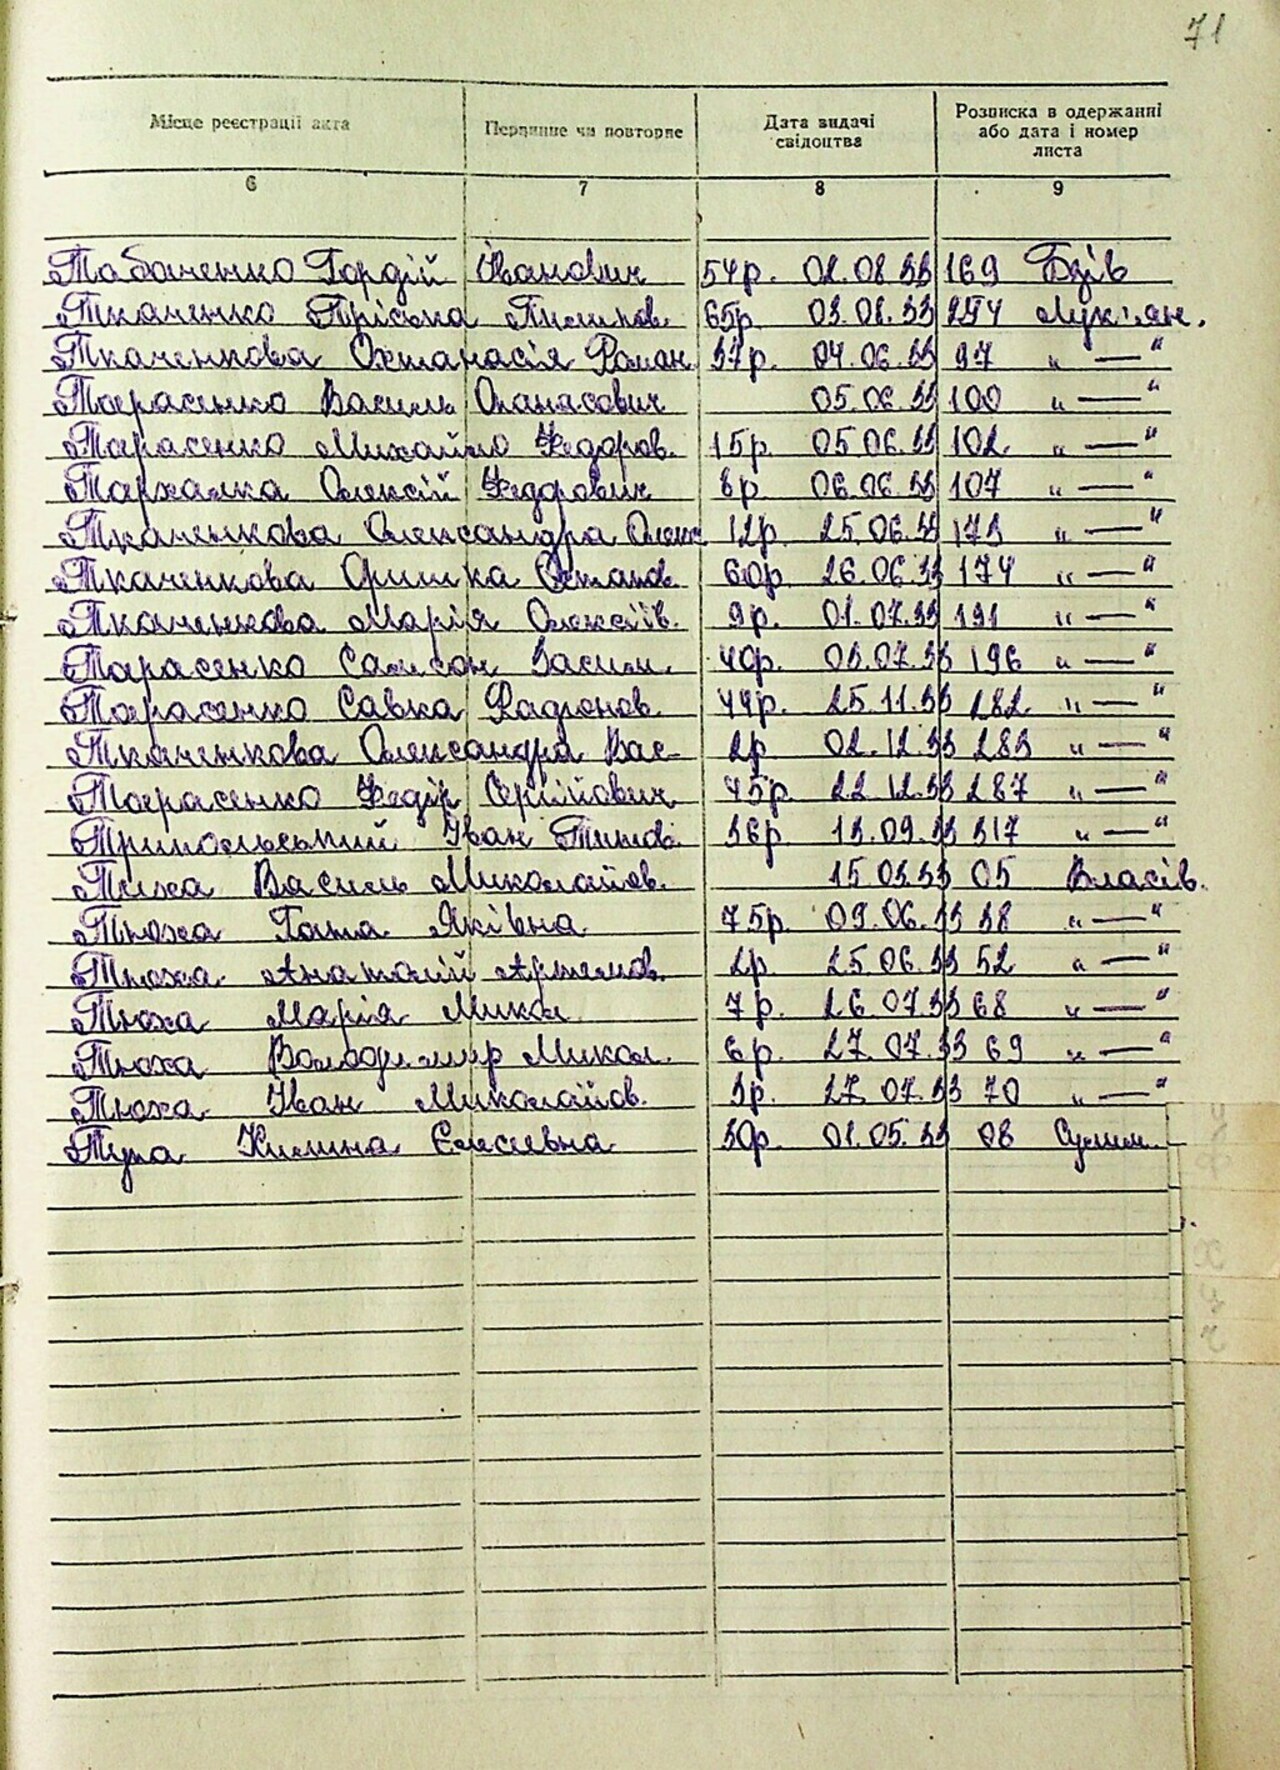 71
Місце реєстрації акта Первинне чи повторне Дата видачі свідоцтва Розписка в одержанні або дата і номер листа
6 7 8 9
Табаченко Гордій Іванович 54р. 02.08.33 169 Бзів
Ткаченко Пріська Пилипов. 65р. 03.02.33 Лук'ян.
Ткаченкова Охтанасія Роман. 37р. 04.06.33 97 " — "
Тарасенко Василь Опанасович 05.06.33 100 " — "
Тарасенко Михайло Федоров. 15р. 05.06.33 102 " — "
Тархалка Олексій Федорович 8р. 06.06.33 107 " — "
Ткаченкова Олександра Олекс 12р. 25.06.33 173 " — "
Ткаченкова Оришка Остапов. 60р. 26.06.33 174 " — "
Ткаченкова Марія Олексіїв. 9р. 01.07.33 191 " — "
Тарасенко Самсон Васил. 40р. 03.07.33 196 " — "
Тарасенко Савка Радіонов. 44р. 25.11.33 282 " — "
Ткаченкова Олександра Вас- 2р. 02.12.33 283 " — "
Тарасенко Федір Сергійович 45р. 22.12.33 287 " — "
Трипольський Іван Тимов. 36р. 13.09.33 317 " — "
Василь Миколайов. 15.03.33 05 Власів.
Тюха Ганна Яківна 75р. 09.06.33 38 " — "
Тюха Анатолій Артемов. 2р. 25.06.33 52 " — "
Тюха Марія Микол 7р. 26.07.33 68 " — "
Тюха Володимир Микол. 6р. 27.07.33 69 " — "
Тюха Іван Миколайов. 3р. 27.07.33 70 " — "
Тупа Килина Єлисеївна 30р. 01.05.33 08 Сулим.